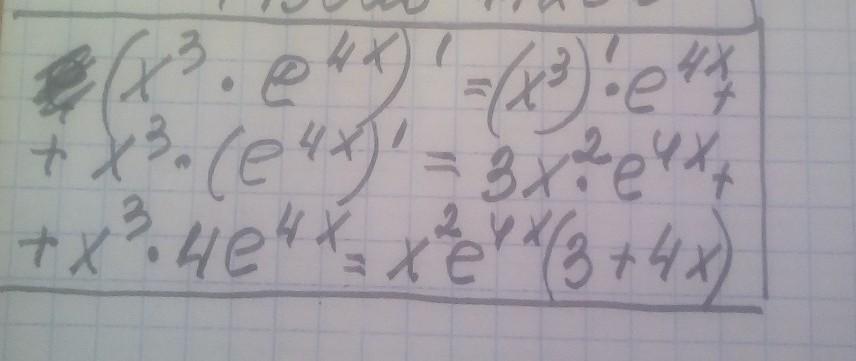 (x³ · e⁴ˣ)' = (x³)' · e⁴ˣ +
+ x³ · (e⁴ˣ)' = 3x² · e⁴ˣ +
+ x³ · 4e⁴ˣ = x²e⁴ˣ(3 + 4x)